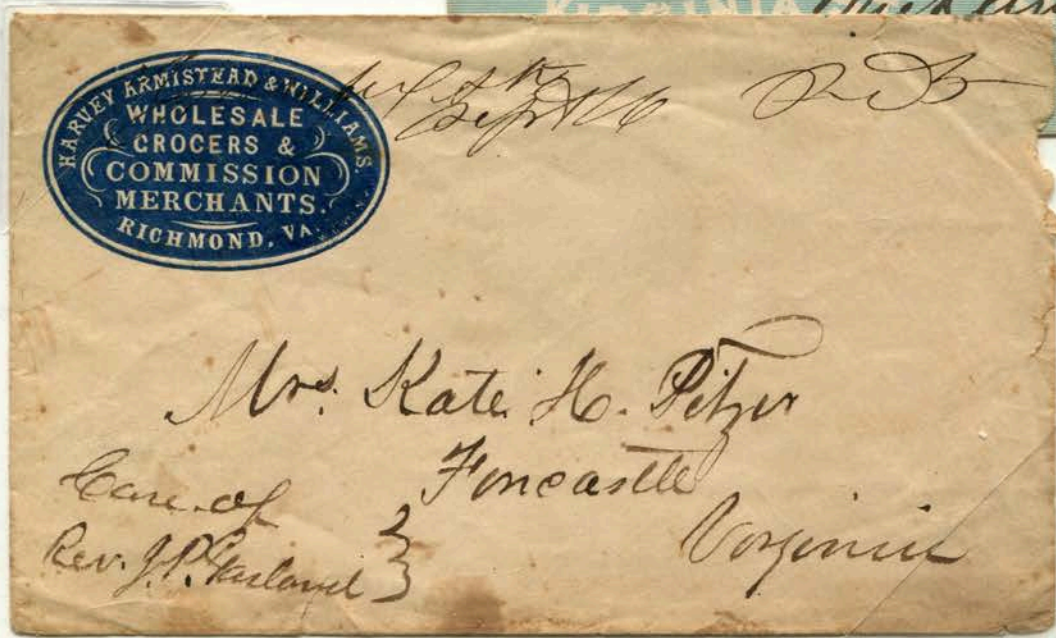 VIRGINIA
HARVEY ARMISTEAD & WILLIAMS.
WHOLESALE
GROCERS &
COMMISSION
MERCHANTS.
RICHMOND, VA.
Sept 16
Mrs. Kate H. Pitzer
Fincastle
Virginia
Care of
Rev. J. P. Garland